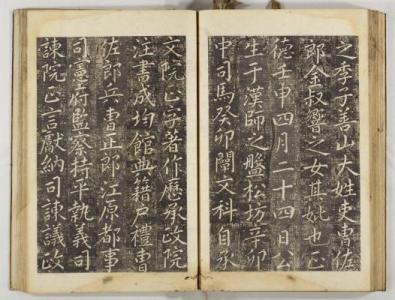 之季子善山大姓吏曹佐
郎金叔響之女其妣也正
德壬申四月二十四日公
生于漢師之盤松坊辛卯
中司馬癸卯闡文科自承
文院正字著作歷承政院
注書成均館典籍戶禮曹
佐郎兵曹正郎江原都事
司憲府監察持平執義司
諫院正言獻納司諫議政